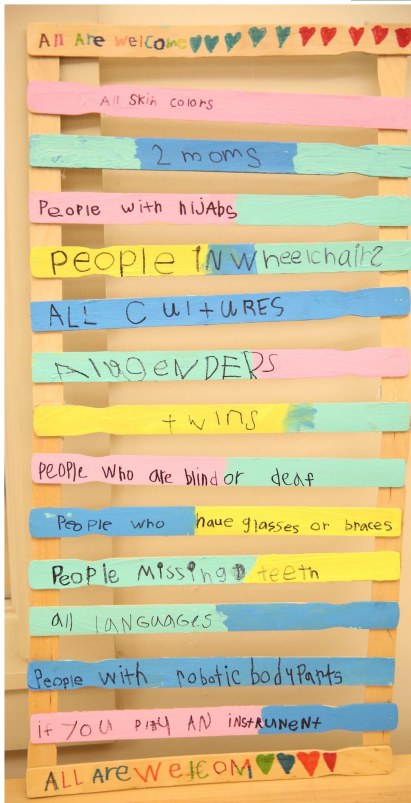 All Are Welcome
All Skin colors
2 moms
People with hijAbs
PEOPLE IN Wheelchairs
ALL CUltURES
AllgENDERS
twins
People who are blind or deaf
People who have glasses or braces
People Missing teeth
all lANGUAGES
People with robotic bodyparts
if YOU PlAY AN iNStRUNENt
ALL Are WelCOM